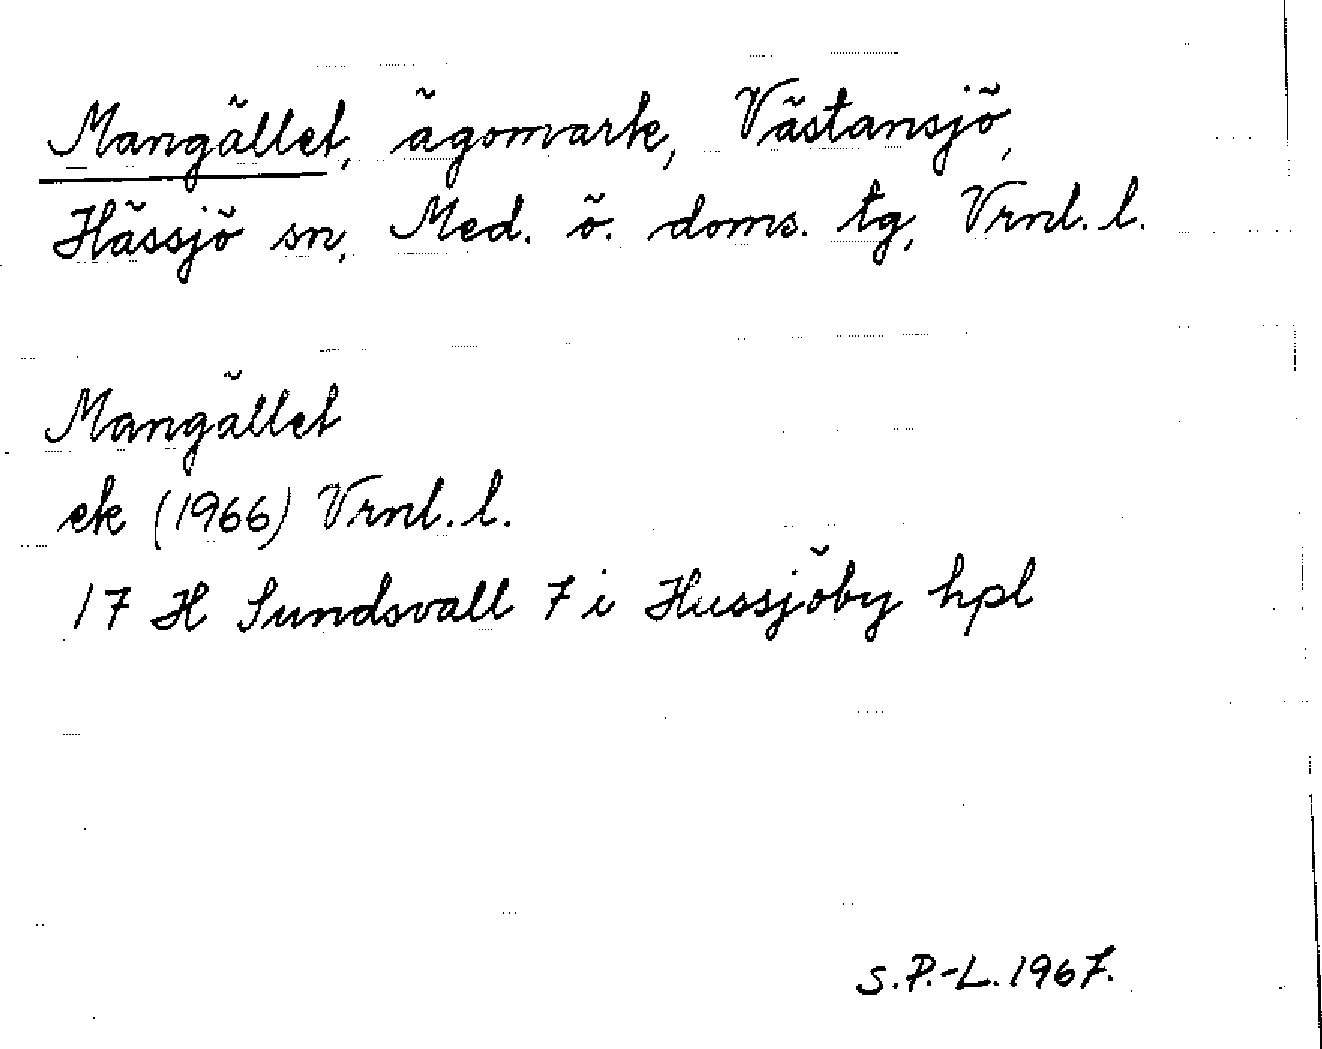 Mangället, ägomark, Västansjö,
Hässjö sn, Med. ö. doms. tg, Vrnl. l.
Mangället
ek (1966) Vrnl. l.
17 H Sundsvall 7 i Hussjöby hpl
S.P.-L. 1967.